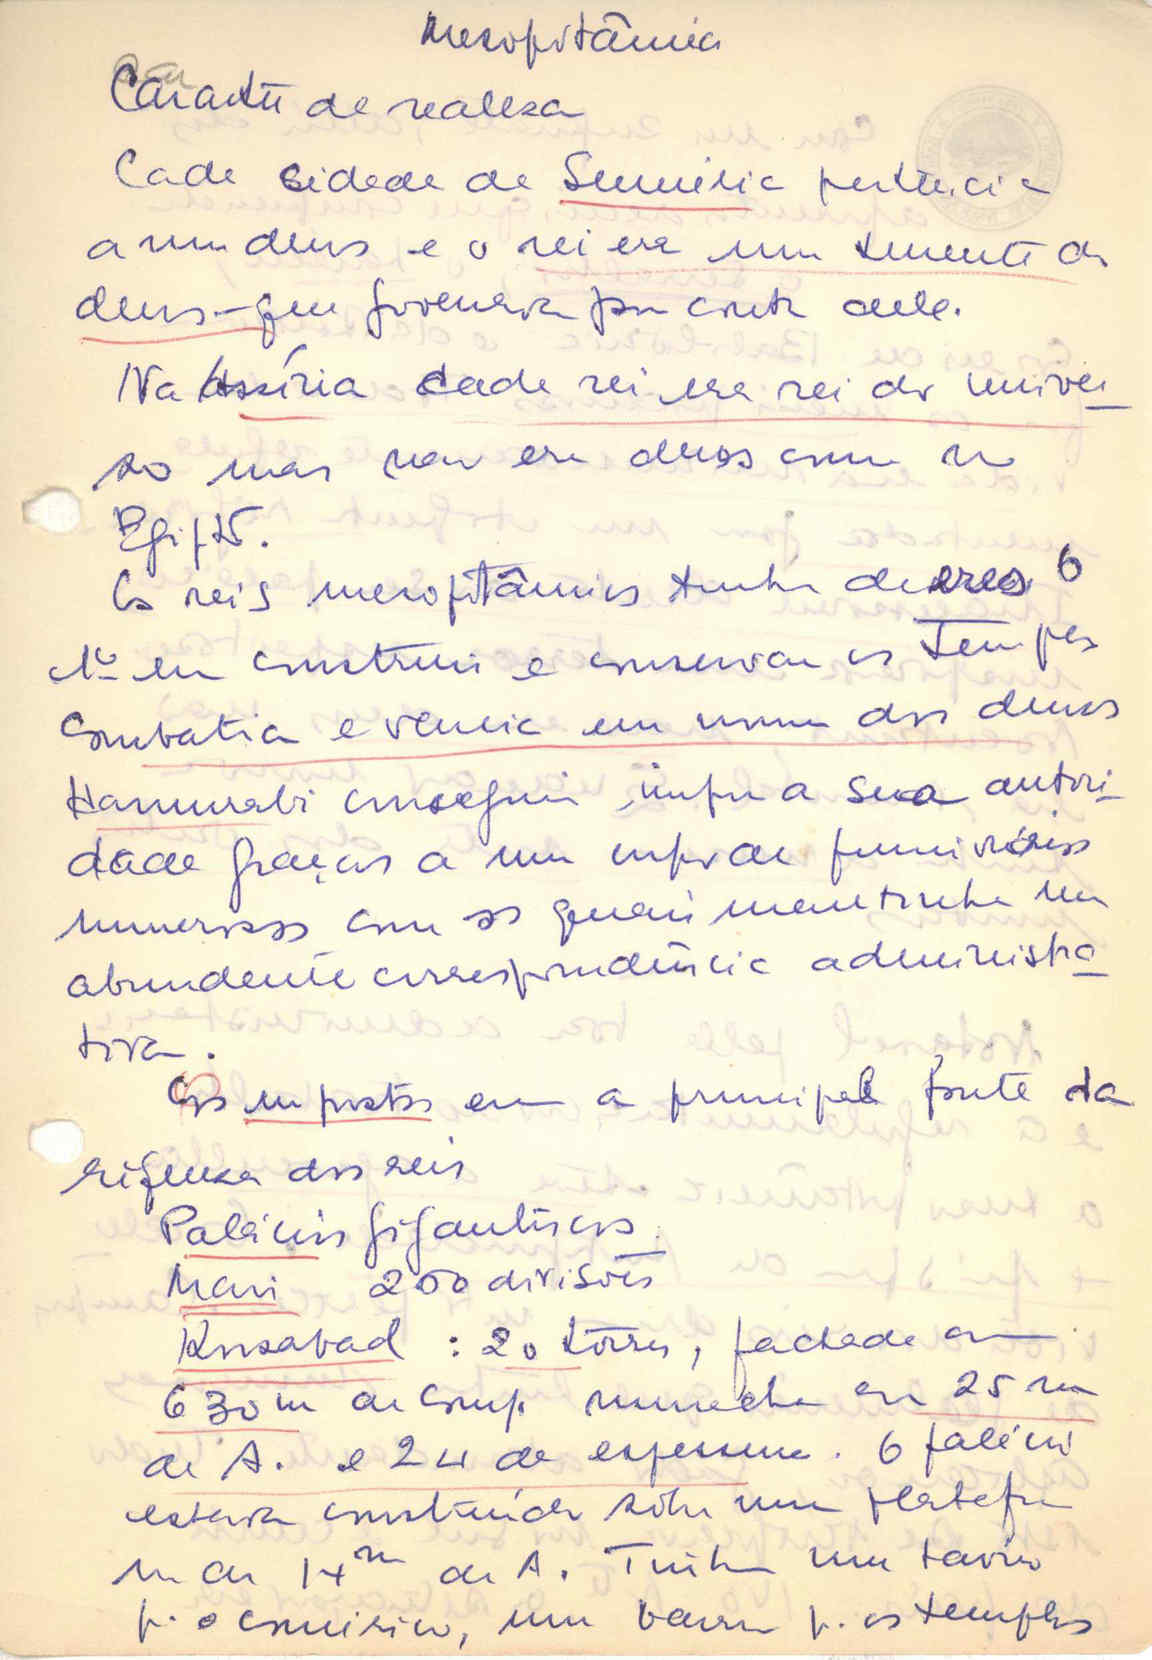 Mesopotâmia
Caracter de realeza
Cada cidade da Suméria pertencia
a um deus e o rei era um tenente do
deus - que governava por conta dele.
Na Assíria cada rei era rei do univer-
so mas não era deus como no
Egipto.
Os reis mesopotâmios tinha deveres 6
1º era construir e conservar os Templos
Combatia e vencia em nome dos deuses
Hamurabi conseguiu impor a sua autori-
dade graças a um corpo de funcionários
numerosos com os quais mantinha uma
abundante correspondência administra-
tiva.
Os impostos era a principal fonte da
riqueza dos reis
Palácios gigantescos.
Mari 200 divisões
Korsabad : 20 tôrres, fachada com
630m de comp muralha com 25 m
de A. e 24 de espessura. O palácio
estava construído sôbre uma platafor
ma de 14m de A. Tinha um bairro
p. o comércio, um bairro p. os templos